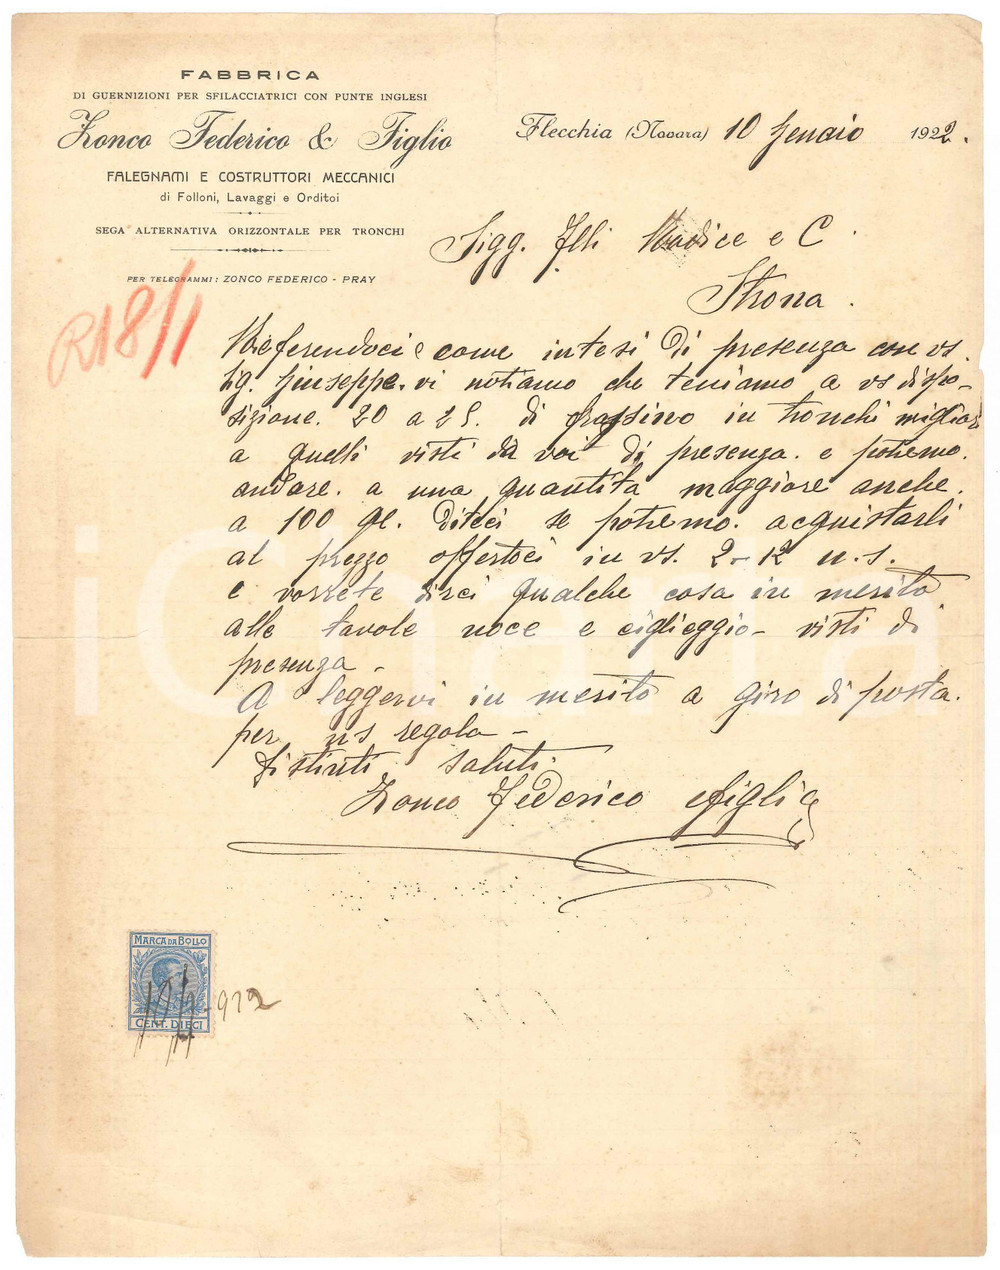 FABBRICA
DI GUERNIZIONI PER SFILACCIATRICI CON PUNTE INGLESI
Zonco Federico & Figlio
FALEGNAMI E COSTRUTTORI MECCANICI
di Folloni, Lavaggi e Orditoi
SEGA ALTERNATIVA ORIZZONTALE PER TRONCHI
PER TELEGRAMMI: ZONCO FEDERICO - PRAY
Flecchia (Novara) 10 Jennaio 1922.
R18/1
Sigg. Flli Radice e C.
Strona.
Riferendoci come intesi di presenza con vs.
sig. Giuseppe. vi notiamo che teniamo a vs dispo-
sizione. 20 a 25. di frassino in tronchi migliori
a quelli visti da voi di presenza. e potremo.
andare. a una quantita maggiore anche.
a 100 ql. Diteci se potremo. acquistarli
al prezzo offertoci in vs. 2-12 u.s.
e vorrete dirci qualche cosa in merito
alle tavole noce e ciglieggio- visti di
presenza -
A leggervi in merito a giro di posta.
per ns regola -
Distinti saluti.
Zonco Federico e figlio
MARCA DA BOLLO
CENT. DIECI
10/1-922
iCharta